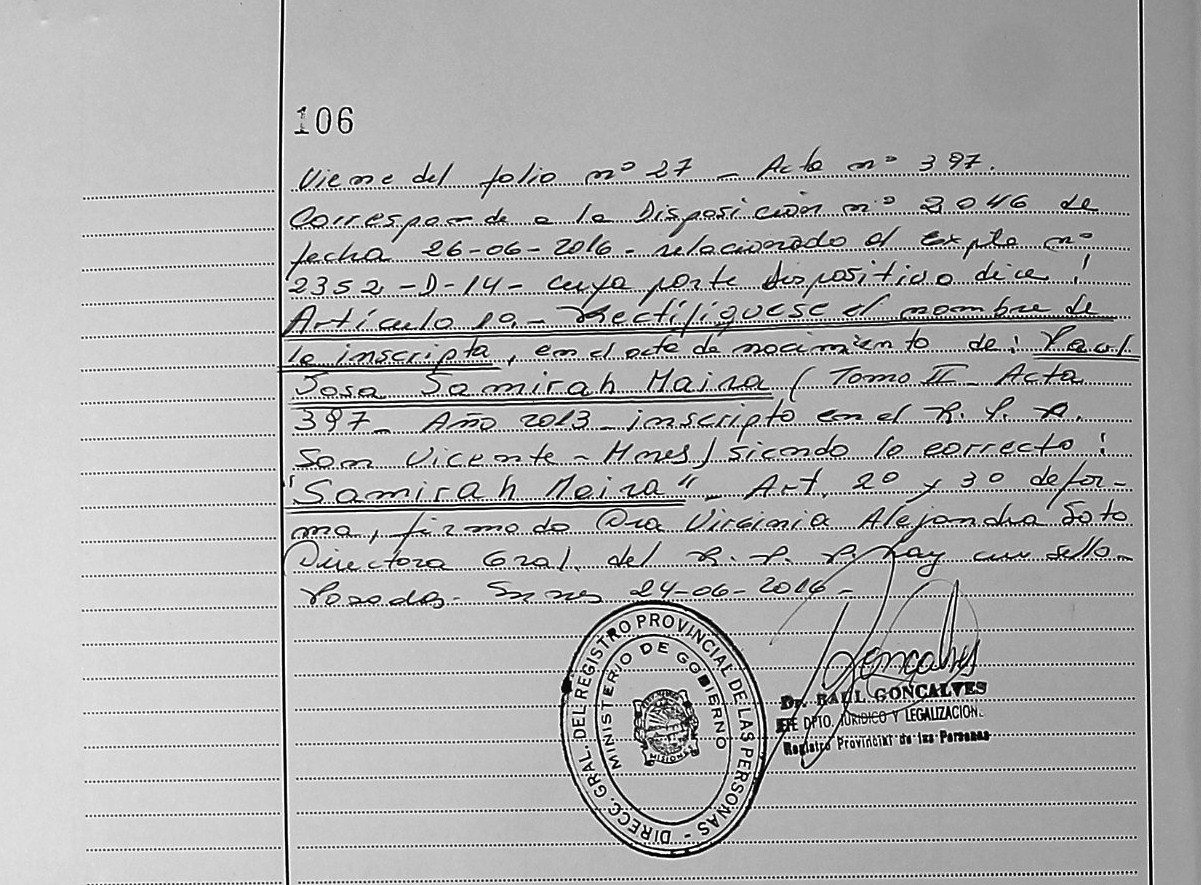 106
Viene del folio nº 27 - Acta nº 397.
Corresponde a la Disposición nº 2046 de
fecha 26-06-2016 - relacionado al Expte nº
2352-D-14- cuya parte dispositiva dice:
Artículo 1º.- Rectifíquese el nombre de
la inscripta, en el acta de nacimiento de:
Sosa Samirah Maira (Tomo II - Acta
397 - Año 2013 - inscripta en el R. P. P.
San Vicente - Mnes) siendo lo correcto:
"Samirah Maira" - Art. 2º y 3º de for-
ma, firmado Dra Virginia Alejandra Soto
Directora Gral. del R. P. P. hay un sello-
Posadas - 24-06-2016 -
DIRECC. GRAL. DEL REGISTRO PROVINCIAL DE LAS PERSONAS -
MINISTERIO DE GOBIERNO
MISIONES
Goncalves
Dr. RAUL GONCALVES
JEFE DPTO. JURIDICO Y LEGALIZACION.
Registro Provincial de las Personas